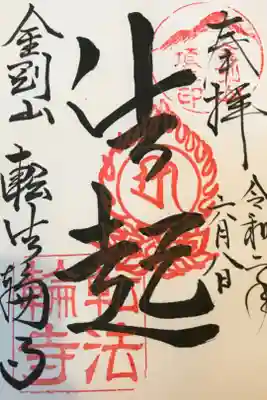 奉拝
令和二年
六月八日
法起
金剛山
転法輪寺
転法
輪寺